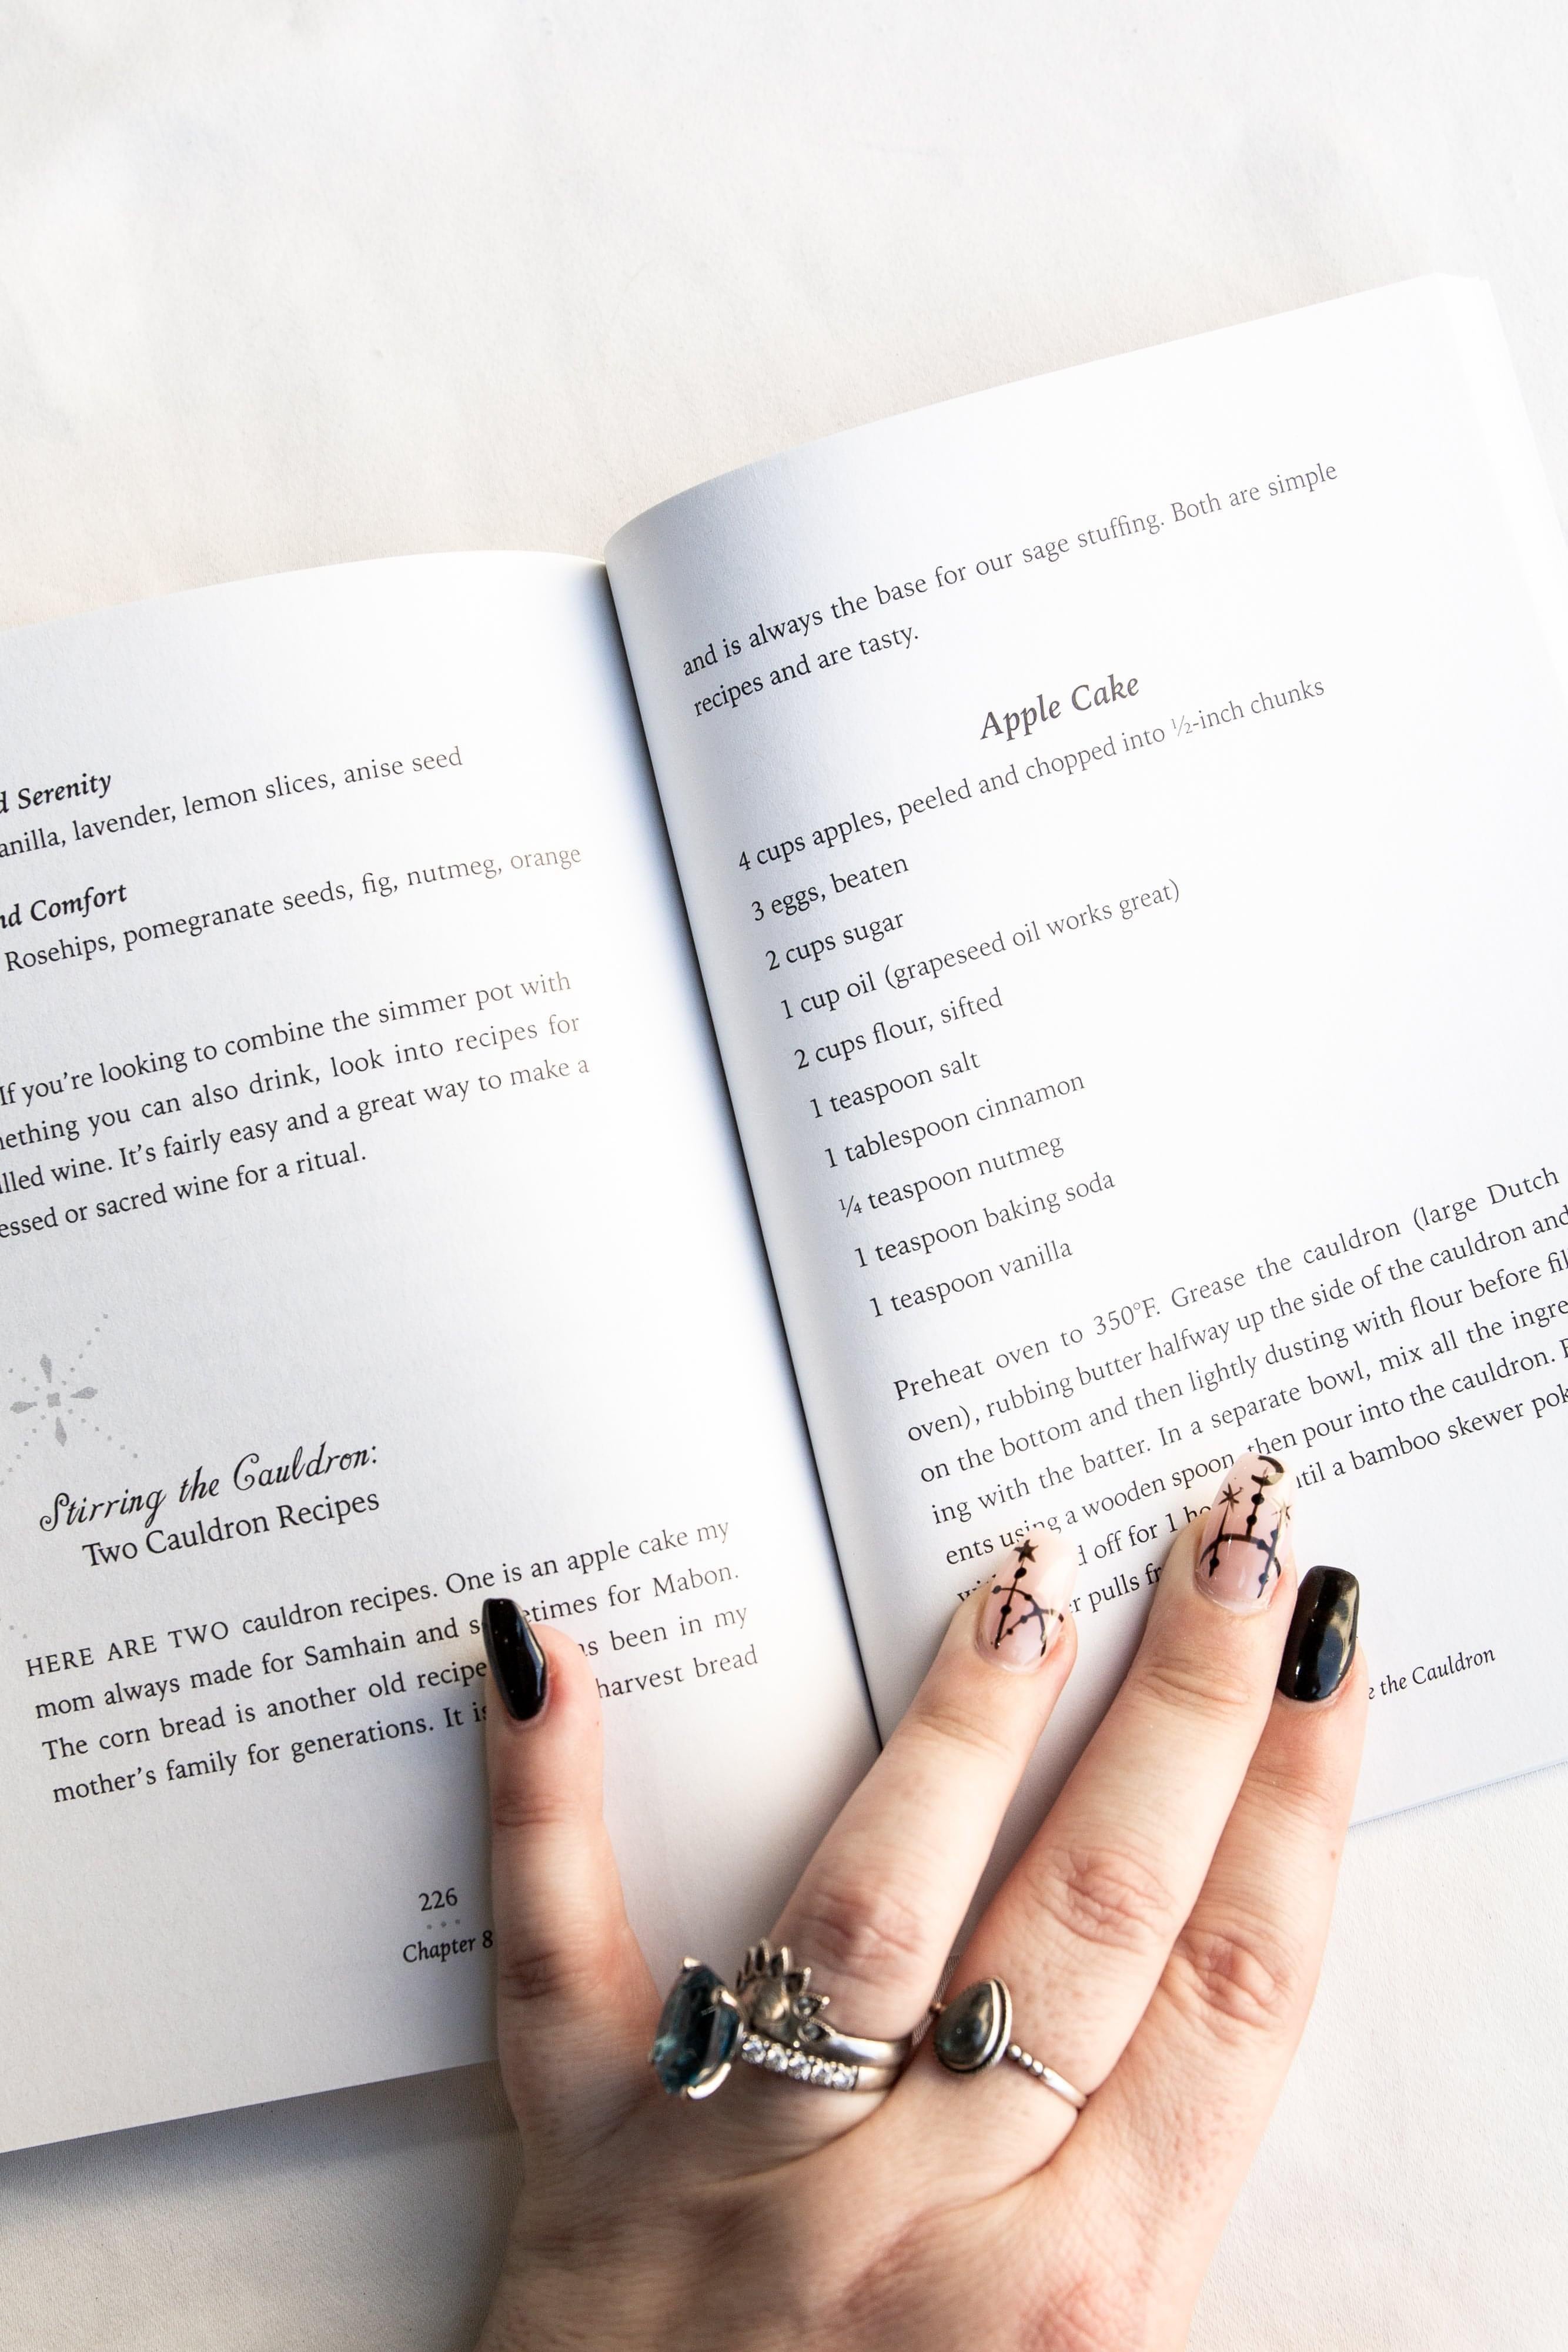 Serenity
vanilla, lavender, lemon slices, anise seed
Comfort
Rosehips, pomegranate seeds, fig, nutmeg, orange
If you're looking to combine the simmer pot with
you can also drink, look into recipes for
wine. It's fairly easy and a great way to make a
or sacred wine for a ritual.
Stirring the Cauldron:
Two Cauldron Recipes
HERE ARE TWO cauldron recipes. One is an apple cake my
mom always made for Samhain and sometimes for Mabon.
The corn bread is another old recipe been in my
mother's family for generations. It harvest bread
226
Chapter 8
and is always the base for our sage stuffing. Both are simple
recipes and are tasty.
Apple Cake
4 cups apples, peeled and chopped into ½-inch chunks
3 eggs, beaten
2 cups sugar
1 cup oil (grapeseed oil works great)
2 cups flour, sifted
1 teaspoon salt
1 tablespoon cinnamon
¼ teaspoon nutmeg
1 teaspoon baking soda
1 teaspoon vanilla
Preheat oven to 350°F. Grease the cauldron (large Dutch
oven), rubbing butter halfway up the side of the cauldron and
on the bottom and then lightly dusting with flour before fil
ing with the batter. In a separate bowl, mix all the ingre
ents using a wooden spoon, then pour into the cauldron.
off for 1 until a bamboo skewer pok
pulls
the Cauldron